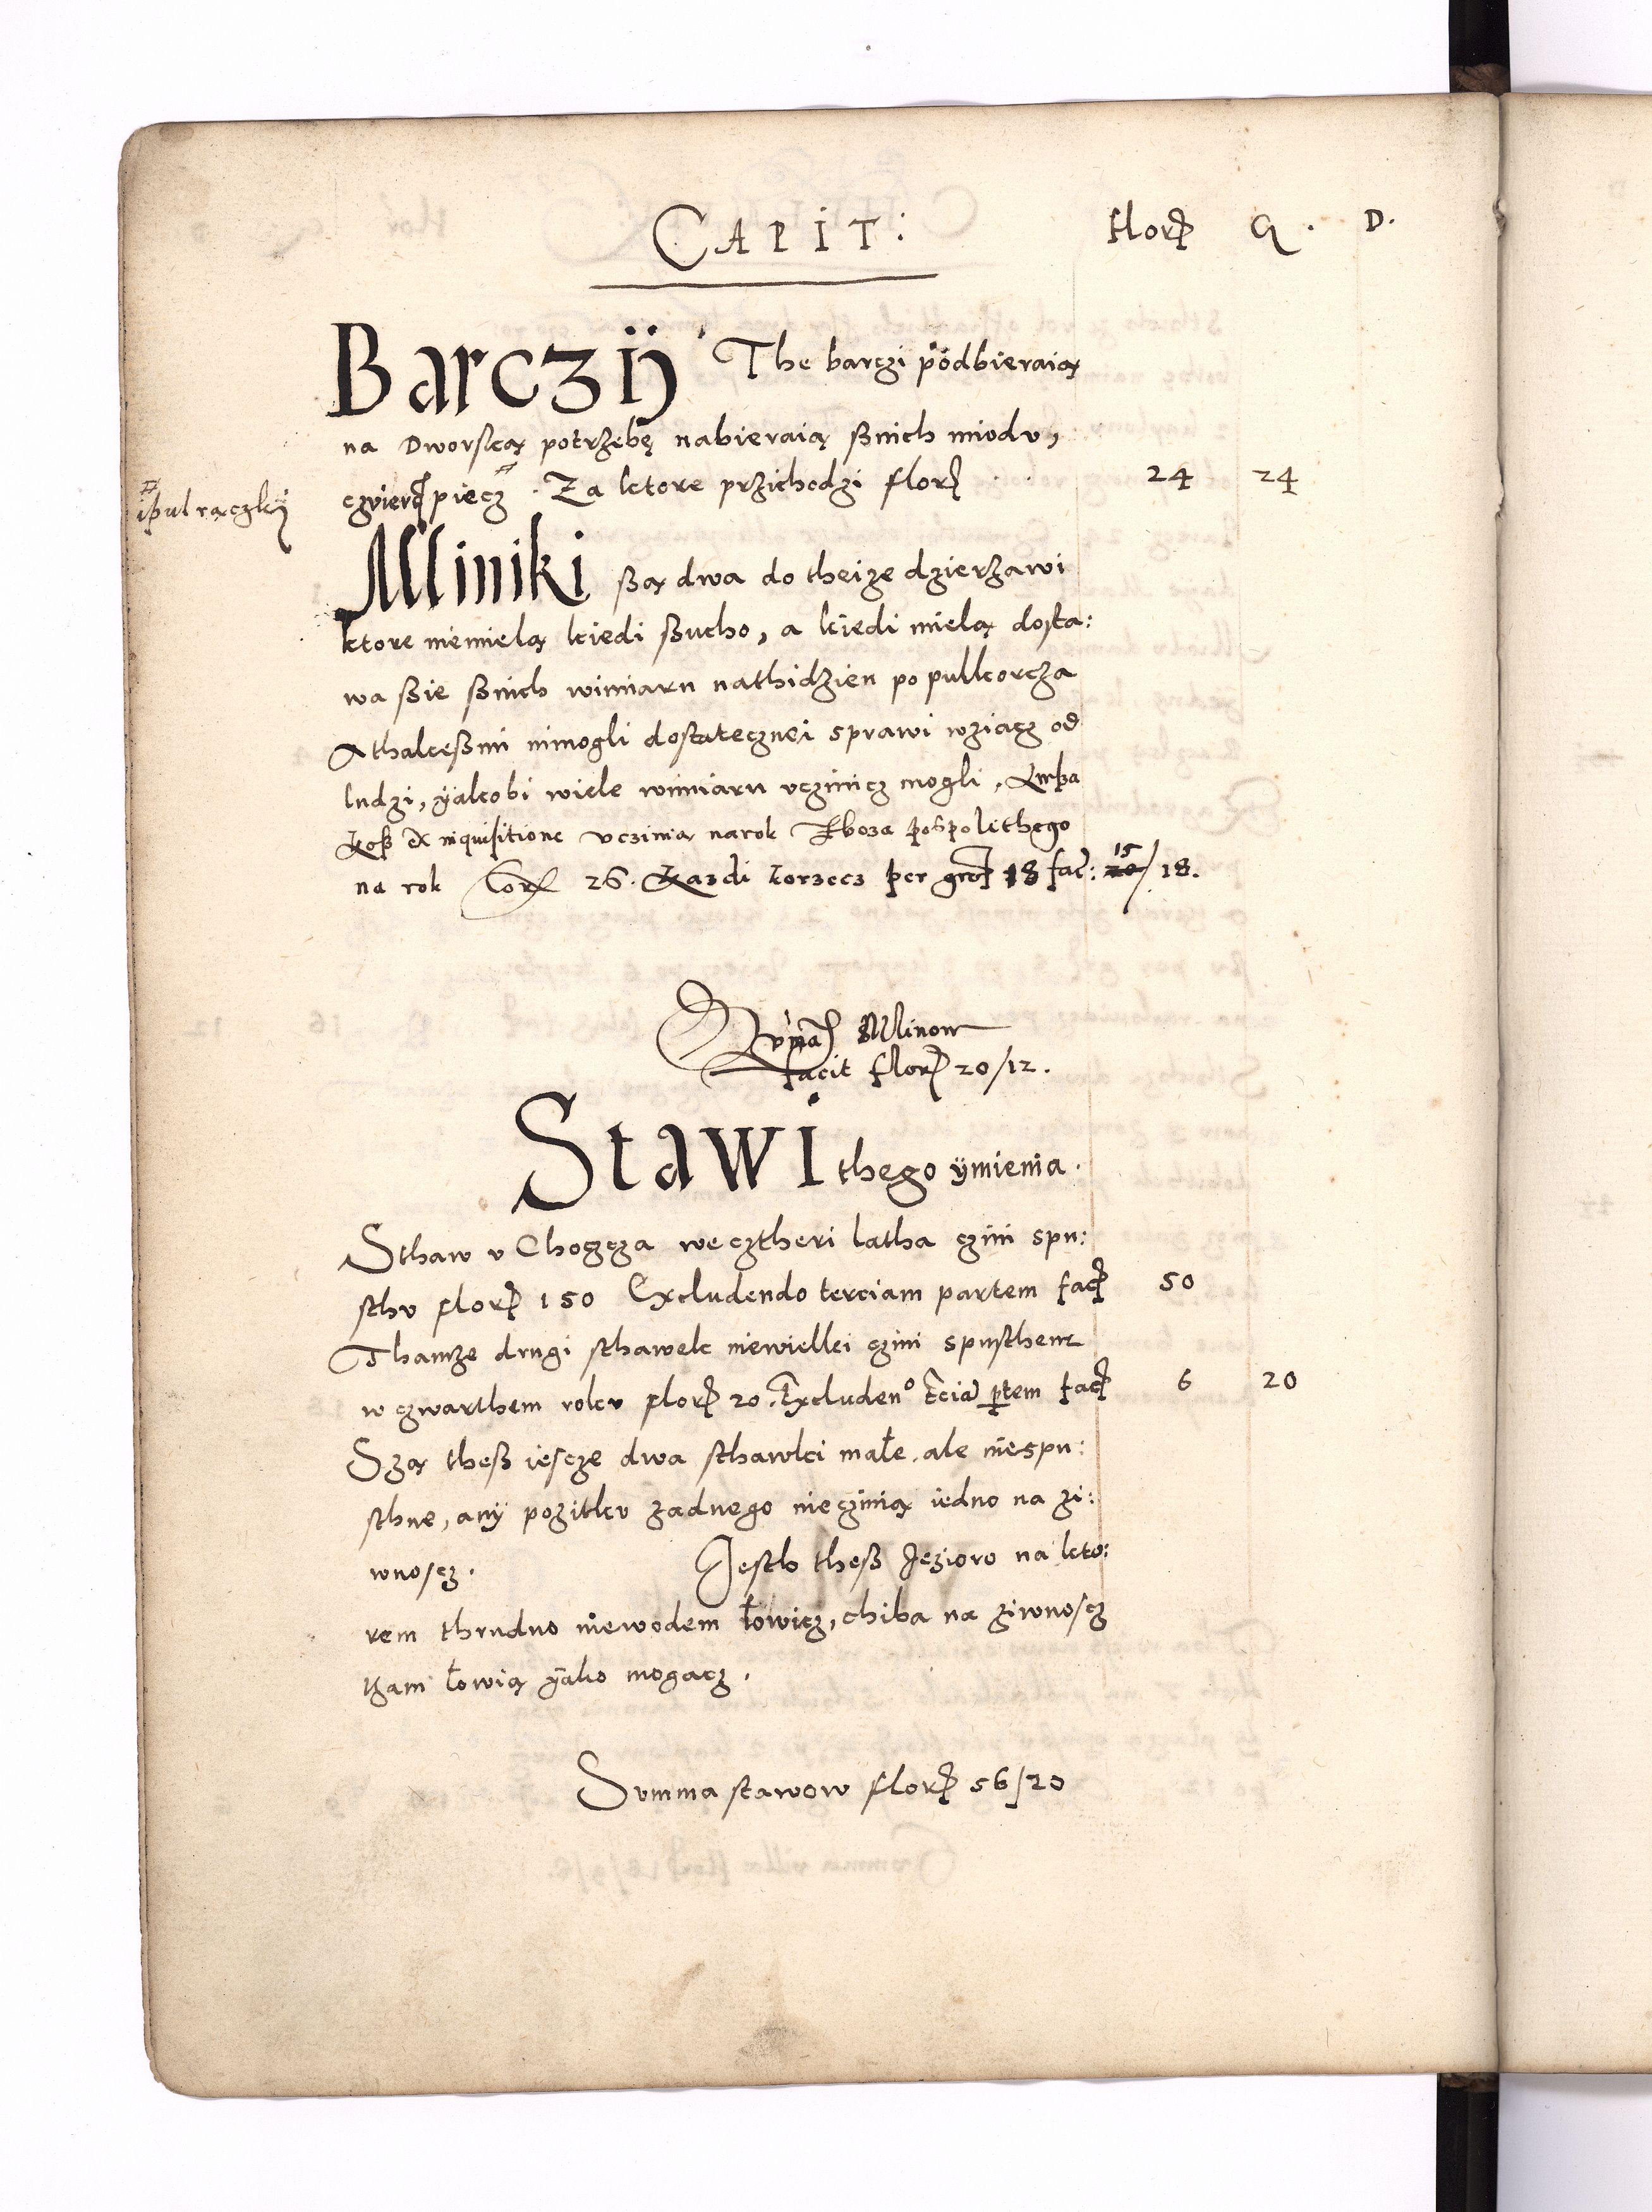 CAPIT: Flor G. D.
Barczÿ The barczi podbieraią
na Dworską potrzebę nabieraią ßnich miodu,
czwierć piecz. Za ktore przichodzi flor 24 24
ÿ pul raczkÿ
Mliniki ßą dwa do theize dzierżawi
ktore niemielą kiedi ßucho, a kiedi mielą dosta:
wa ßie ßnich wimiaru nathidzien po pullkorcza
A thakeßmi nimogli dostatecznei sprawi wziącz od
ludzi, ÿakobi wiele wimiaru vczinicz mogli,
ex inquisitione vczinia na rok Zboza pospolithego
na rok Cor 26. Kazdi korzecz per gros 18 fac: 15/18.
Suma Mlinow
facit flor 20/12.
Stawi thego ÿmienia.
Sthaw v Chogcza we cztheri latha czini spu:
sthu flor 150 Excludendo terciam partem fac 50
Thamze drugi sthawek niewielki czini spusthem
w czwarthem roku flor 20. Excluden° tcia ptem fac 6 20
Szą theß iescze dwa sthawki małe, ale niespu:
sthne, anÿ pozitku zadnego nieczinią iedno na zi:
wnoscz. Jesth theß Jezioro na kto:
rem thrudno niewodem łowicz, chiba na ziwnoscz
łowią ÿako mogacz.
Summa stawow flor 56/20